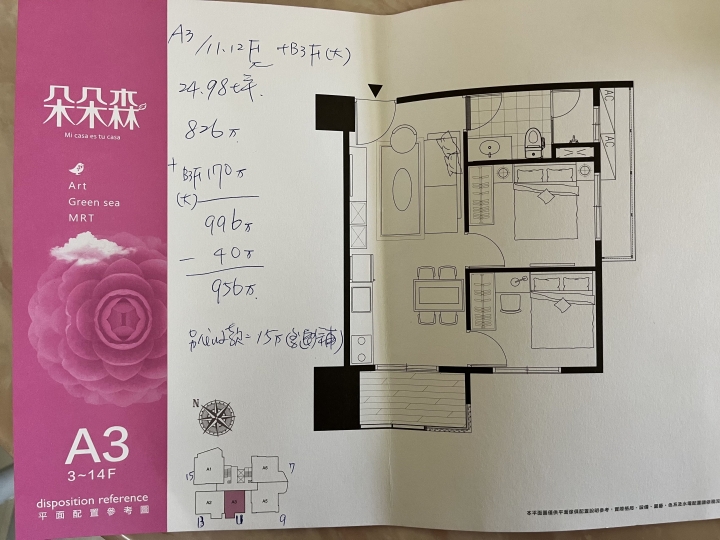 朵朵森
Mi casa es tu casa
Art
Green sea
MRT
A3
3~14F
disposition reference
平面配置參考圖
A3/11.12F +B3F(大)
24.98坪.
826万
+B3F170万
(大)
996万
- 40万
956万.
=15万
N
A1
A6
A2
A3
A5
15
7
13
11
9
AC
AC